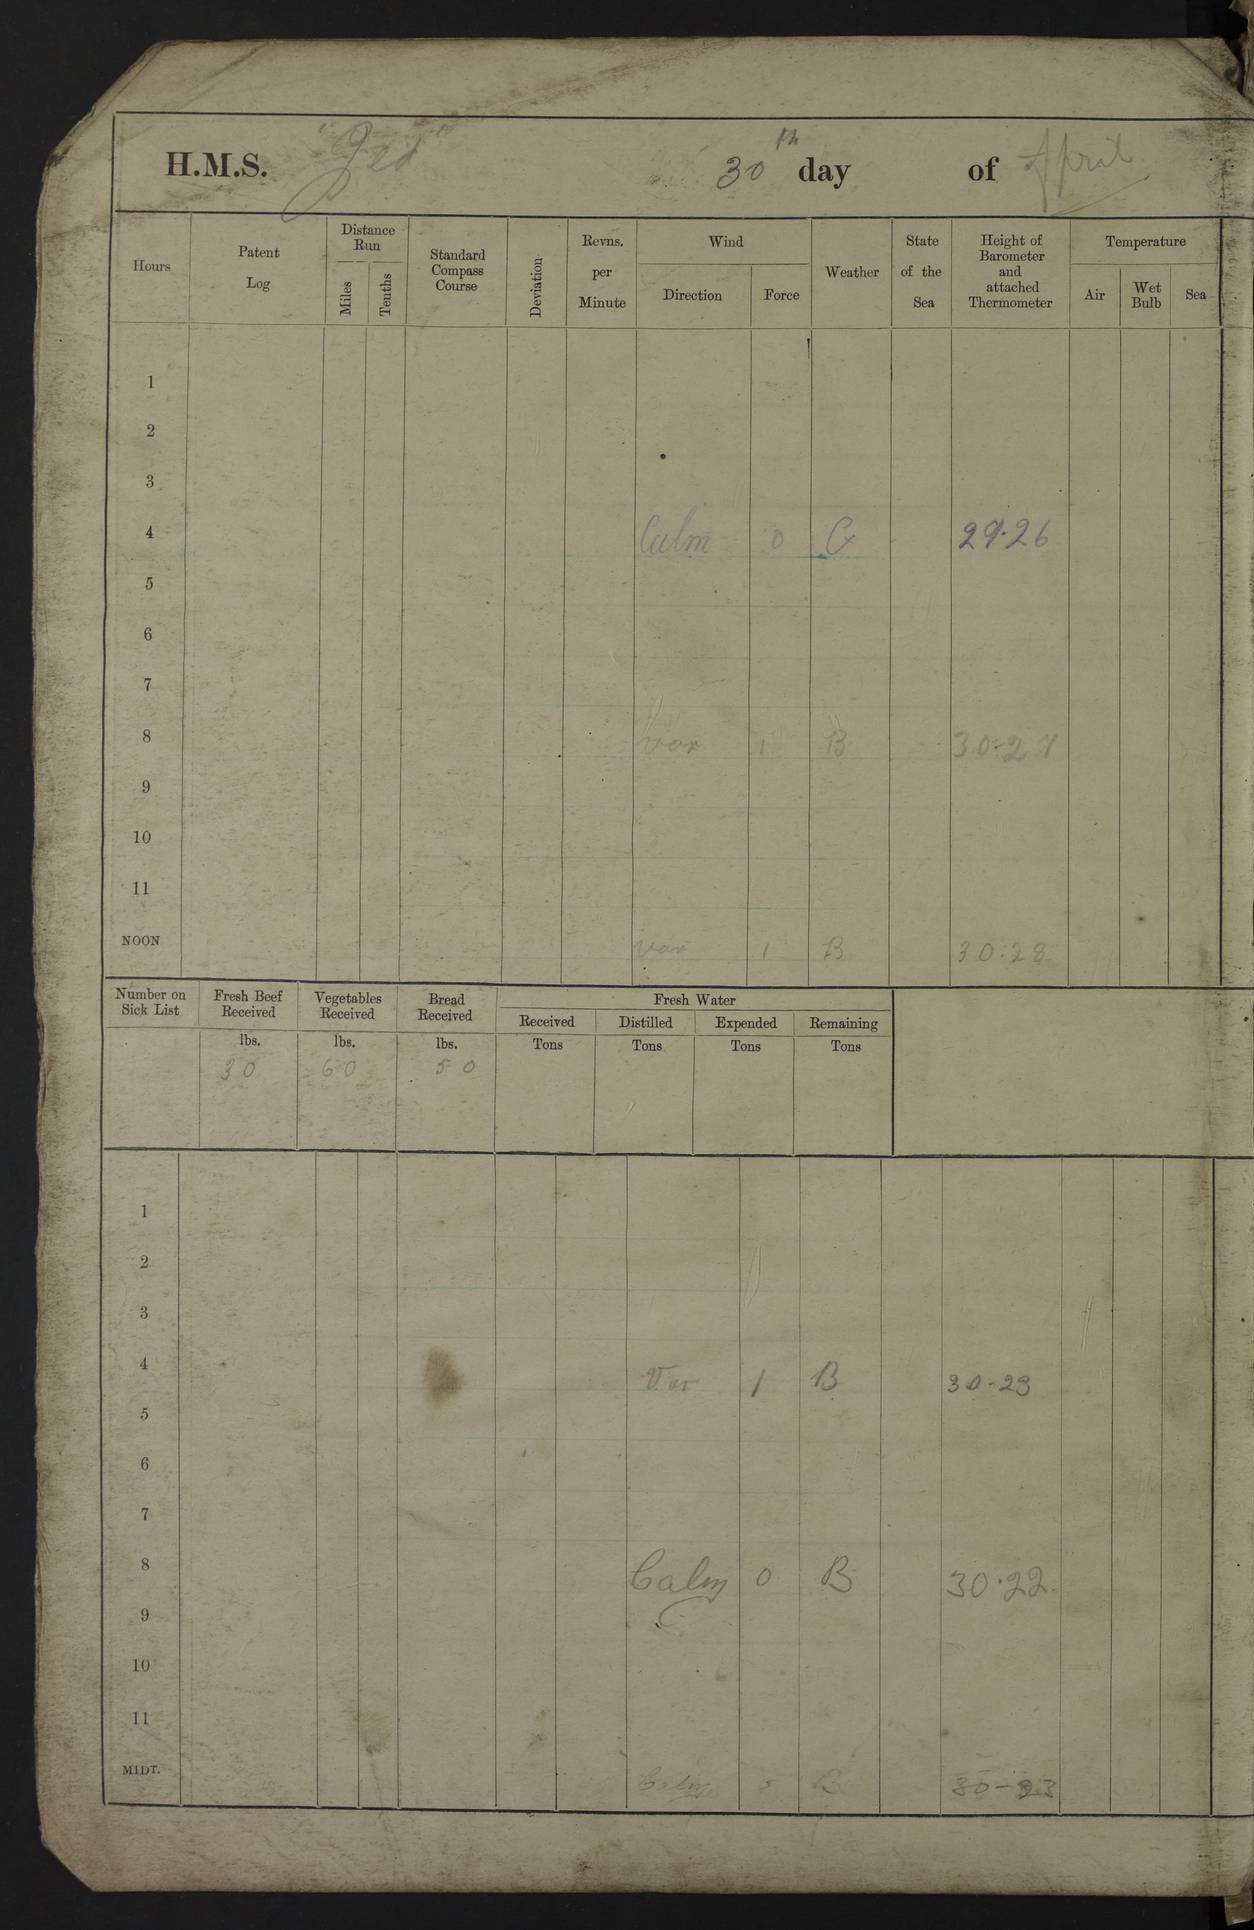 H.M.S. "Jed" 30th day of April
Hours Patent Log Distance Run Miles Tenths Standard Compass Course Deviation Revns. per Minute Wind Direction Force Weather State of the Sea Height of Barometer and attached Thermometer Temperature Air Wet Bulb Sea
1
2
3
4 Calm 0 C 29.26
5
6
7
8 Var 1 B 30.27
9
10
11
NOON Var 1 B 30.28
Number on Sick List Fresh Beef Received Vegetables Received Bread Received Fresh Water
Received Distilled Expended Remaining
lbs. lbs. lbs. Tons Tons Tons Tons
30 60 50
1
2
3
4 Var 1 B 30-23
5
6
7
8 Calm 0 B 30.22
9
10
11
MIDT. Calm 0 B 30-23